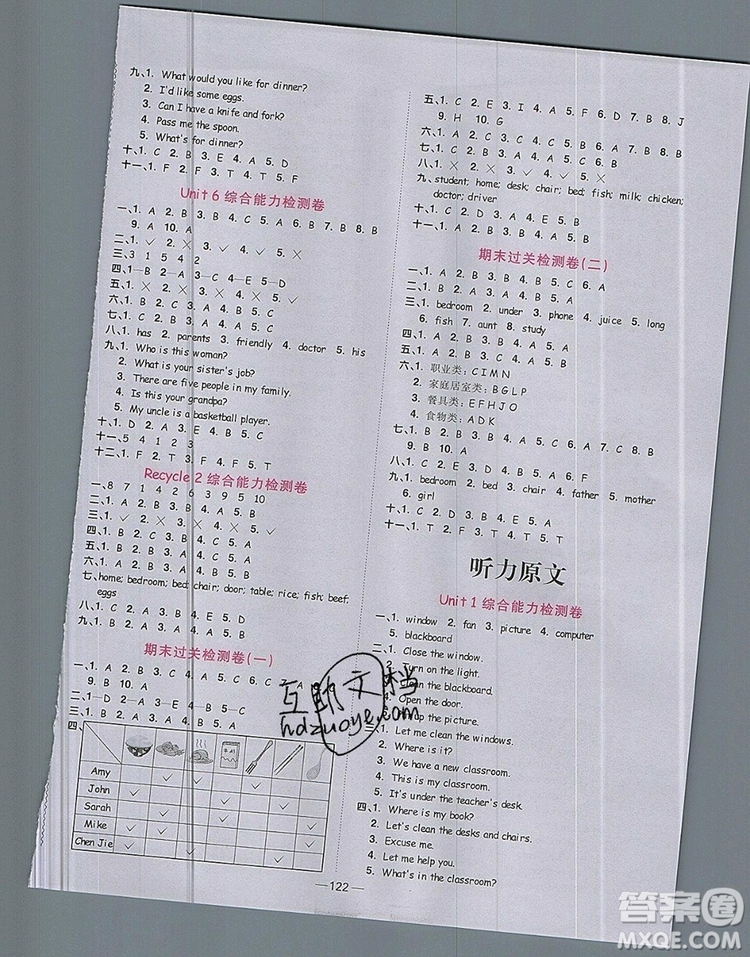 九、1. What would you like for dinner?
2. I'd like some eggs.
3. Can I have a knife and fork?
4. Pass me the spoon.
5. What's for dinner?
十、1. C 2. B 3. E 4. A 5. D
十一、1. F 2. F 3. T 4. T 5. F
Unit 6 综合能力检测卷
一、1. A 2. B 3. B 4. C 5. A 6. B 7. B 8. B
9. A 10. A
二、1. ✓ 2. ✕ 3. ✓ 4. ✓ 5. ✕
三、3 1 5 4 2
四、1—B 2—A 3—C 4—E 5—D
五、1. ✕ 2. ✓ 3. ✕ 4. ✕ 5. ✓
六、1. C 2. B 3. A 4. C 5. B
七、1. B 2. C 3. A 4. C 5. A
八、1. has 2. parents 3. friendly 4. doctor 5. his
九、1. Who is this woman?
2. What is your sister's job?
3. There are five people in my family.
4. Is this your grandpa?
5. My uncle is a basketball player.
十、1. D 2. A 3. E 4. C 5. B
十一、5 4 1 2 3
十二、1. F 2. T 3. F 4. F 5. T
Recycle 2 综合能力检测卷
一、8 7 1 4 2 6 3 9 5 10
二、1. A 2. B 3. A 4. B 5. A
三、1. ✓ 2. ✕ 3. ✕ 4. ✕ 5. ✓
四、1. B 2. C 3. A 4. A 5. C
五、1. B 2. B 3. A 4. A 5. B
六、1. B 2. A 3. C 4. A 5. B
七、home; bedroom; bed; chair; door; table; rice; fish; beef;
eggs
八、1. C 2. A 3. B 4. E 5. D
九、1. B 2. A 3. A 4. B 5. A
期末过关检测卷(一)
一、1. A 2. B 3. C 4. A 5. C 6. C
9. B 10. A
二、1—D 2—A 3—E 4—B 5—C
三、1. B 2. A 3. A 4. B 5. A
四、
Amy
John
Sarah
Mike
Chen Jie
五、1. C 2. E 3. I 4. A 5. F 6. D 7. B 8. J
9. H 10. G
六、1. A 2. C 3. C 4. B 5. B
七、1. C 2. B 3. C 4. A 5. A
八、1. ✕ 2. ✕ 3. ✓ 4. ✓ 5. ✕
九、student; home; desk; chair; bed; fish; milk; chicken;
doctor; driver
十、1. C 2. D 3. A 4. E 5. B
十一、1. A 2. B 3. A 4. B 5. A
期末过关检测卷(二)
一、1. A 2. B 3. C 4. B 5. C 6. A
二、1. B 2. B 3. A 4. B 5. A
三、1. bedroom 2. under 3. phone 4. juice 5. long
6. fish 7. aunt 8. study
四、1. A 2. A 3. B 4. A 5. B
五、1. A 2. C 3. C 4. A 5. B
六、1. 职业类: C I M N
2. 家庭居室类: B G L P
3. 餐具类: E F H J O
4. 食物类: A D K
七、1. B 2. B 3. C 4. A 5. C 6. A 7. C 8. B
9. B 10. B
八、1. D 2. B 3. E 4. A 5. C
九、1. bedroom 2. bed 3. chair 4. father 5. mother
6. girl
十、1. B 2. D 3. C 4. A 5. E
十一、1. T 2. F 3. T 4. F 5. F
听力原文
Unit 1 综合能力检测卷
一、1. window 2. fan 3. picture 4. computer
5. blackboard
二、1. Close the window.
2. Turn on the light.
clean the blackboard.
4. Open the door.
up the picture.
三、1. Let me clean the windows.
2. Where is it?
3. We have a new classroom.
4. This is my classroom.
5. It's under the teacher's desk.
四、1. Where is my book?
2. Let's clean the desks and chairs.
3. Excuse me.
4. Let me help you.
5. What's in the classroom?
—122—
互助文档
hdzuoye.com
答案圈
MXQE.COM